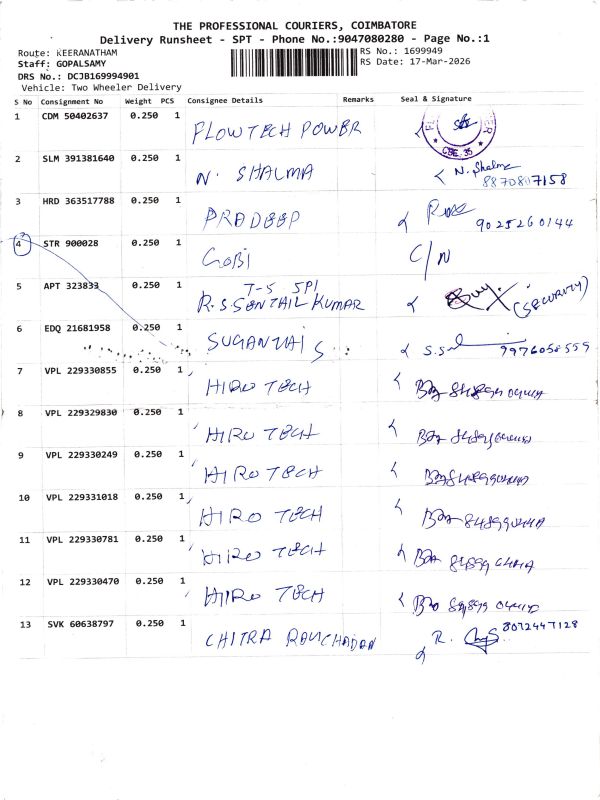 THE PROFESSIONAL COURIERS, COIMBATORE
Delivery Runsheet - SPT - Phone No.:9047080280 - Page No.:1
Route: KEERANATHAM
RS No.: 1699949
Staff: GOPALSAMY
RS Date: 17-Mar-2026
DRS No.: DCJB169994901
Vehicle: Two Wheeler Delivery
S No Consignment No Weight PCS Consignee Details Remarks Seal & Signature
1 CDM 50402637 0.250 1 FLOWTECH POWER
CBE. 35
2 SLM 391381640 0.250 1 N. SHALMA N. Shalma
8870807158
3 HRD 363517788 0.250 1 PRADEEP 9025260144
4 STR 900028 0.250 1 GOBI C/N
5 APT 323833 0.250 1 T-S SPI
R.S. SENTHIL KUMAR (SECURITY)
6 EDQ 21681958 0.250 1 S.S 9976058559
7 VPL 229330855 0.250 1 HIRO TECH
8 VPL 229329830 0.250 1 HIRO TECH
9 VPL 229330249 0.250 1 HIRO TECH
10 VPL 229331018 0.250 1 HIRO TECH
11 VPL 229330781 0.250 1 HIRO TECH
12 VPL 229330470 0.250 1 HIRO TECH
13 SVK 60638797 0.250 1 CHITRA R. 8072447128